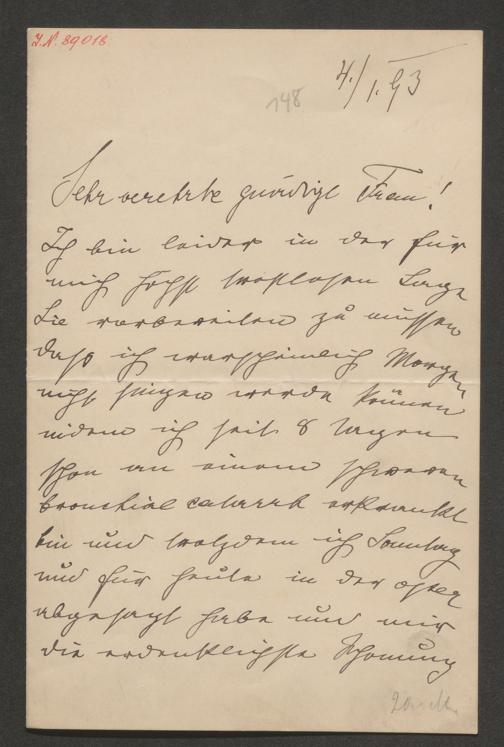 J.N. 89018
148
4./1. 93
Sehr verehrte gnädige Frau!
Ich bin leider in der für
mich höchst trostlosen Lage
Sie vorbereiten zu müssen
daß ich warscheinlich Morgen
nicht singen werde können
indem ich seit 8 Tagen
schon an einem schweren
bronchial catarrh erkrankt
bin und trotzdem ich Sonntag
und für heute in der oper
abgesagt habe und mir
die erdenklichste Schonung